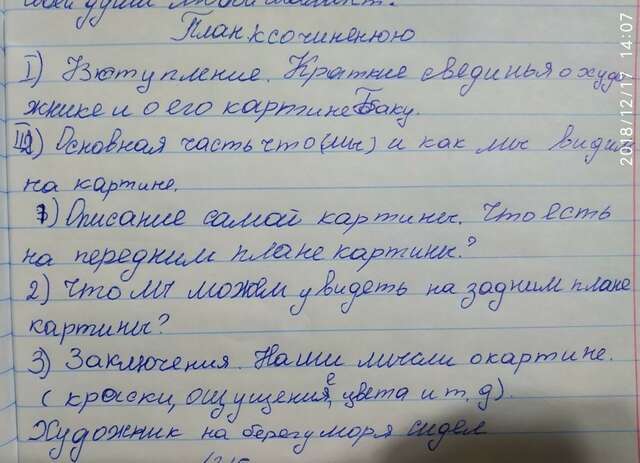 План к сочиненюю
I) Вюступление. Краткие свединия о худо
жнике и о его картине Баку.
II) Основная часть что (мы) и как мы видим
на картине.
1) Описание самой картины. Что есть
на передним плане картины?
2) Что мы можем увидеть на задним плане
картины?
3) Заключения. Наши мысли о картине.
(краски, ощущения, цвета и т. д).
Художник на берегу моря сидел
2018/12/17 14:07